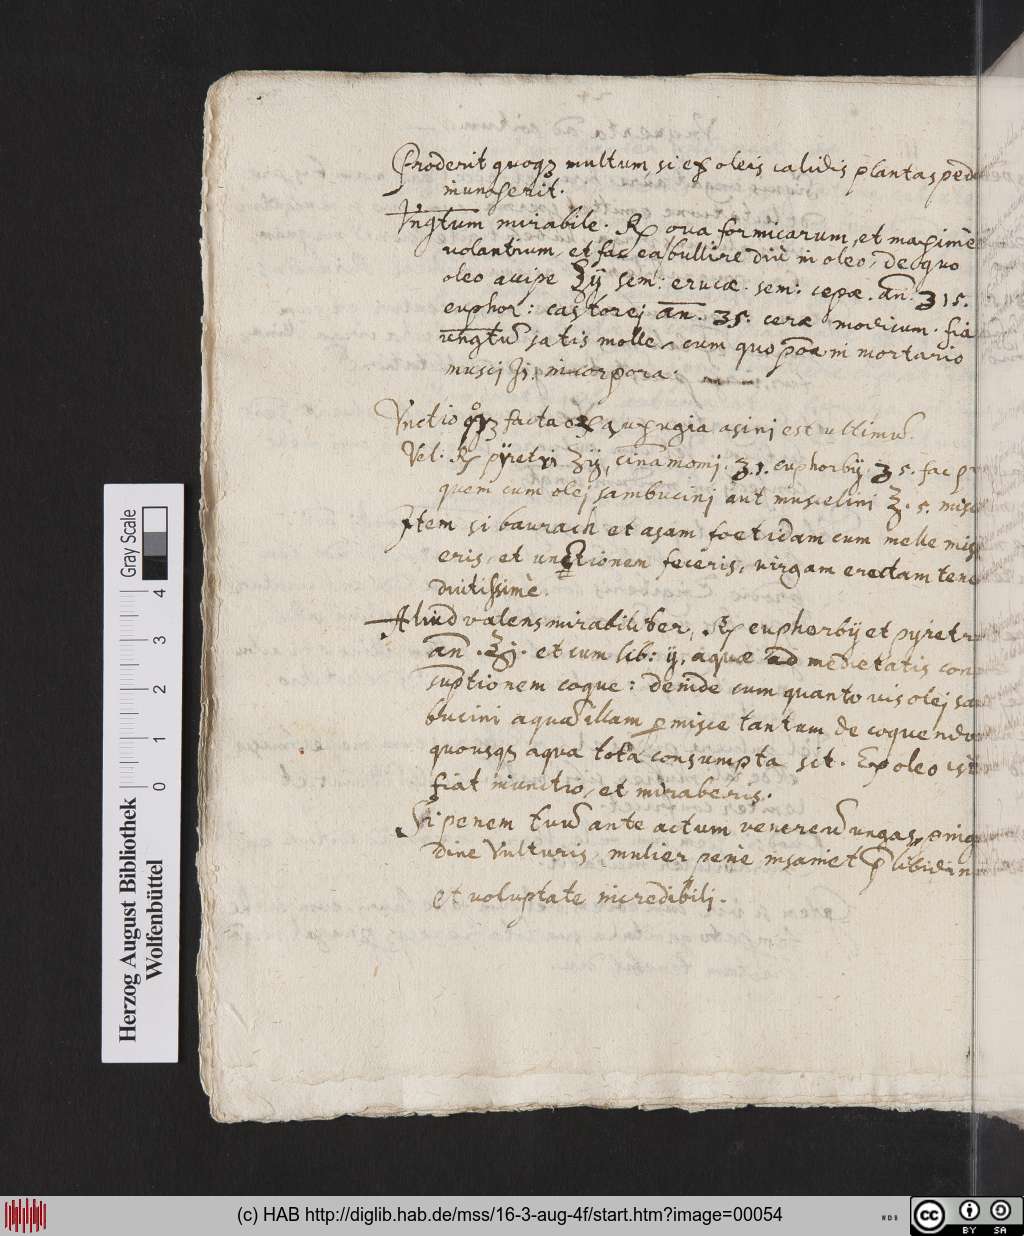 Proderit quoqz multum, si ex oleis calidis plantas ped
inunxerit.
Vngtum mirabile. ℞ ova formicarum, et maximè
volantium, et fac ea bullire diù in oleo, de quo
oleo accipe ℥ij sem: erucæ. sem: cepæ. an. ʒ15.
euphor: castorej an. ʒs. ceræ modicum. fia
vngtũ satis molle, cum quo postea in mortario
muscj incorpora.
Vnctio qz facta ex axungia asinj est ultimũ.
Vel. ℞ pyretri ℥ij, cinamomj. ʒ.1. euphorbij ʒ s. fac
quem cum olej sambucinj aut muscelini ℥. s. misc
Item si baurach et asam foetidam cum melle mis
eris, et unctionem feceris, virgam erectam tene
diutissimè.
Aliud valens mirabiliter, ℞ euphorbij et pyretr
an. ℥j. et cum lib: ij. aquæ ad medietatis con
sumptionem coque: deinde cum quanto vis olej sa
bucini aquã illam permisce tantum de coquendo
quousqz aqva tota consumpta sit. Ex oleo ist
fiat inunctio, et miraberis.
Si penem tuũ ante actum venereũ ungas, pingue
dine Vulturis, mulier penè insaniet præ libidin
et voluptate incredibilj.
Gray Scale
0 1 2 3 4
Herzog August Bibliothek
Wolfenbüttel
(c) HAB http://diglib.hab.de/mss/16-3-aug-4f/start.htm?image=00054
WDB
cc BY SA